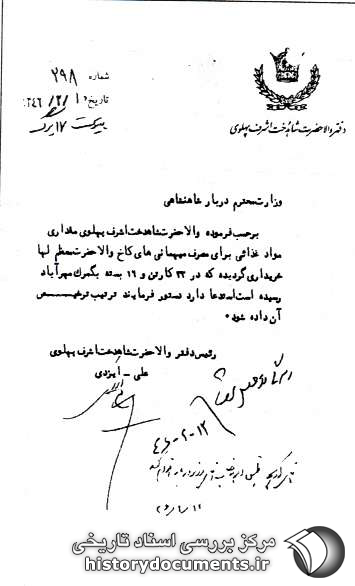 شماره ۲۹۸
تاریخ ۱۰/۲/۱۳۴۶
پیوست ۱۷ برگ
دفتر والاحضرت شاهدخت اشرف پهلوی
وزارت محترم دربار شاهنشاهی
برحسب فرموده والاحضرت شاهدخت اشرف پهلوی مقداری
مواد غذائی برای مصرف میهمانی های کاخ والاحضرت معظم لها
خریداری گردیده که در ۳۳ کارتن و ۱۶ بسته بگمرك مهرآباد
رسیده است استدعا دارد دستور فرمایند ترتیب ترخیص
آن داده شود۰
رئیس دفتر والاحضرت شاهدخت اشرف پهلوی
علی - ایزدی
مرکز بررسی اسناد تاریخی
historydocuments.ir